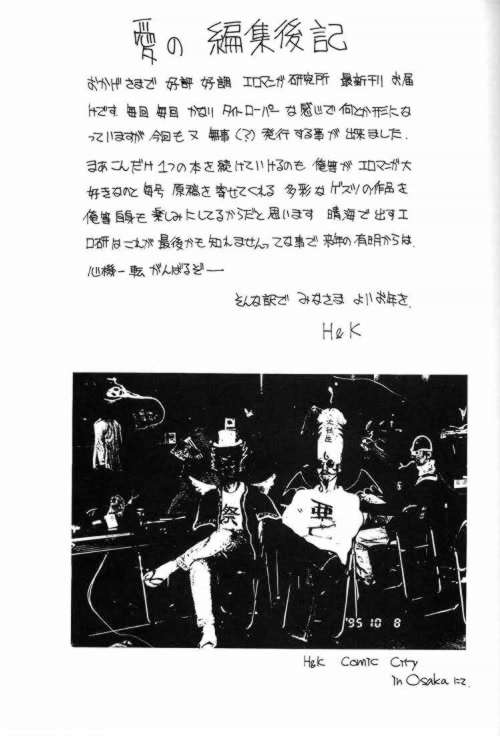 愛の 編集後記
おかげさまで 好評 好調 エロマンガ研究所 最新刊 お届
けです. 毎回 毎回 かなり タイトローパー な感じで 何とか形にな
っていますが 今回も又 無事(?) 発行する事が 出来ました.
まあこんだけ 1つの本を続けていけるのも 俺達が エロマンガ大
好きなのと 毎号 原稿を寄せてくれる 多彩な ゲスツの作品を
俺達自身も 楽しみにしてるからだと思います 晴海で出すエ
ロ研はこれが 最後かも知れませんってな事で 来年の有明からは
心機一転 がんばるぞー
そんな訳で みなさま よいお年を.
H&K
祭
亜
'95 10 8
H&K Comic City
in Osaka にて.